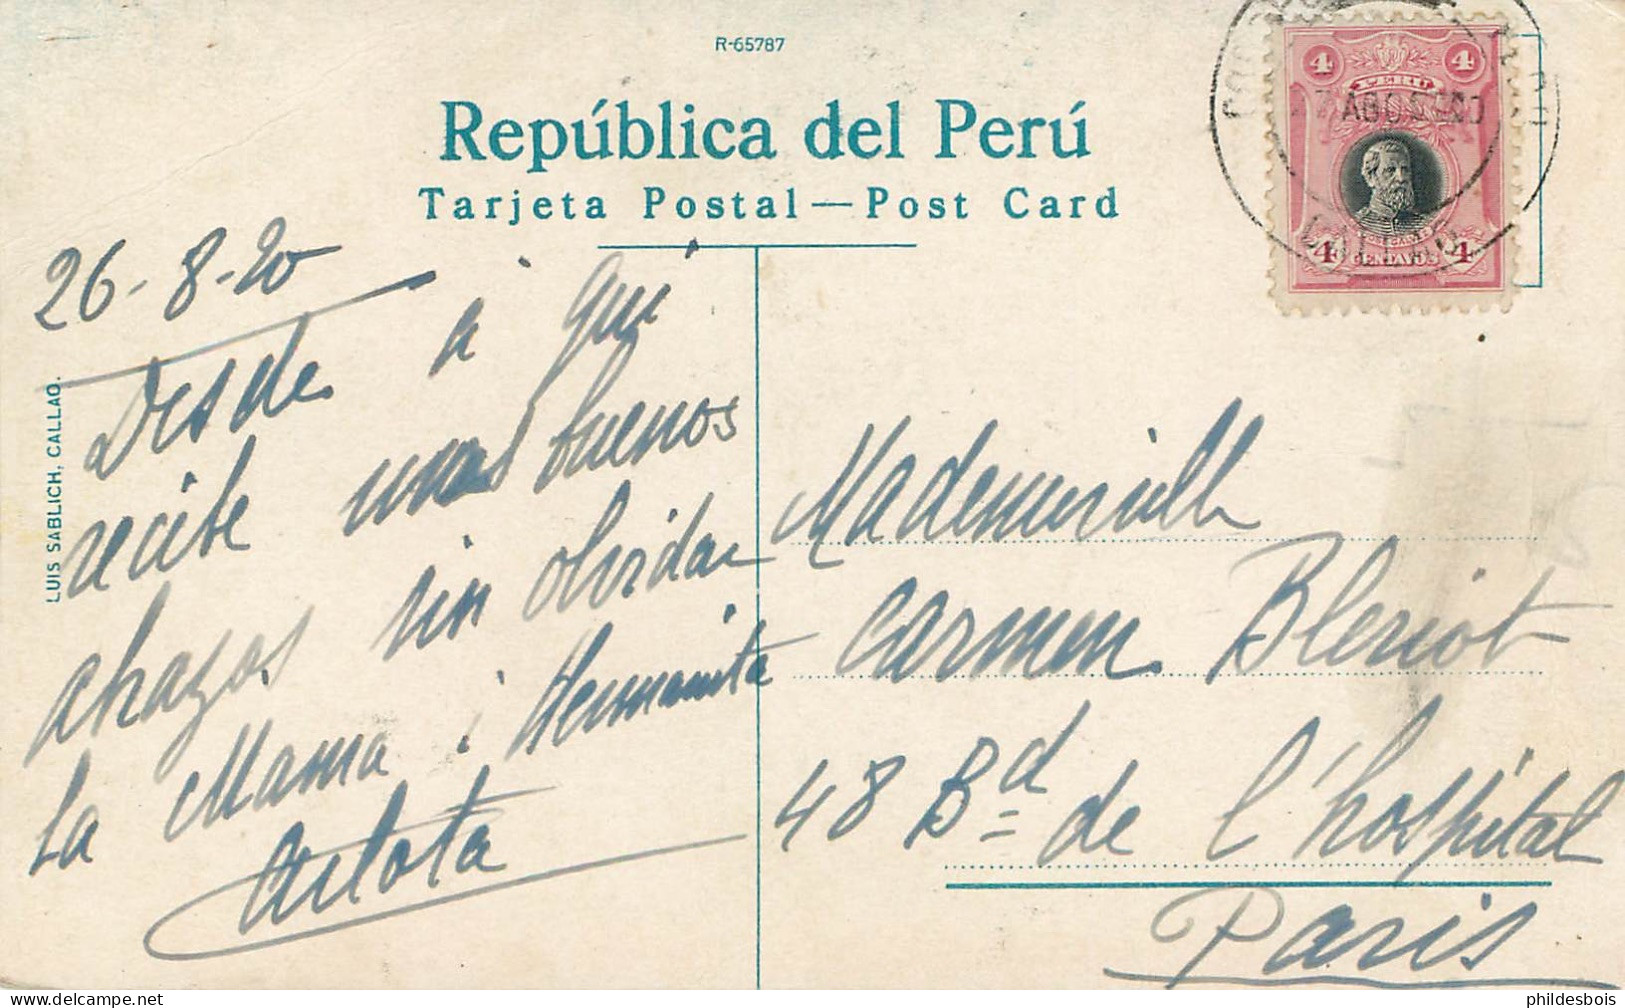 R-65787
República del Perú
Tarjeta Postal — Post Card
4 4
PERU
27 AGOS
CALLAO
4 CENTAVOS 4
LUIS SABLICH, CALLAO.
26-8-20
Desde a qui
recibe unos buenos
abrazos sin olvidar
La Mama i Hermanita
Mademoiselle
Carmen Bleriot
48 Bd de l'hospital
Paris
phildesbois